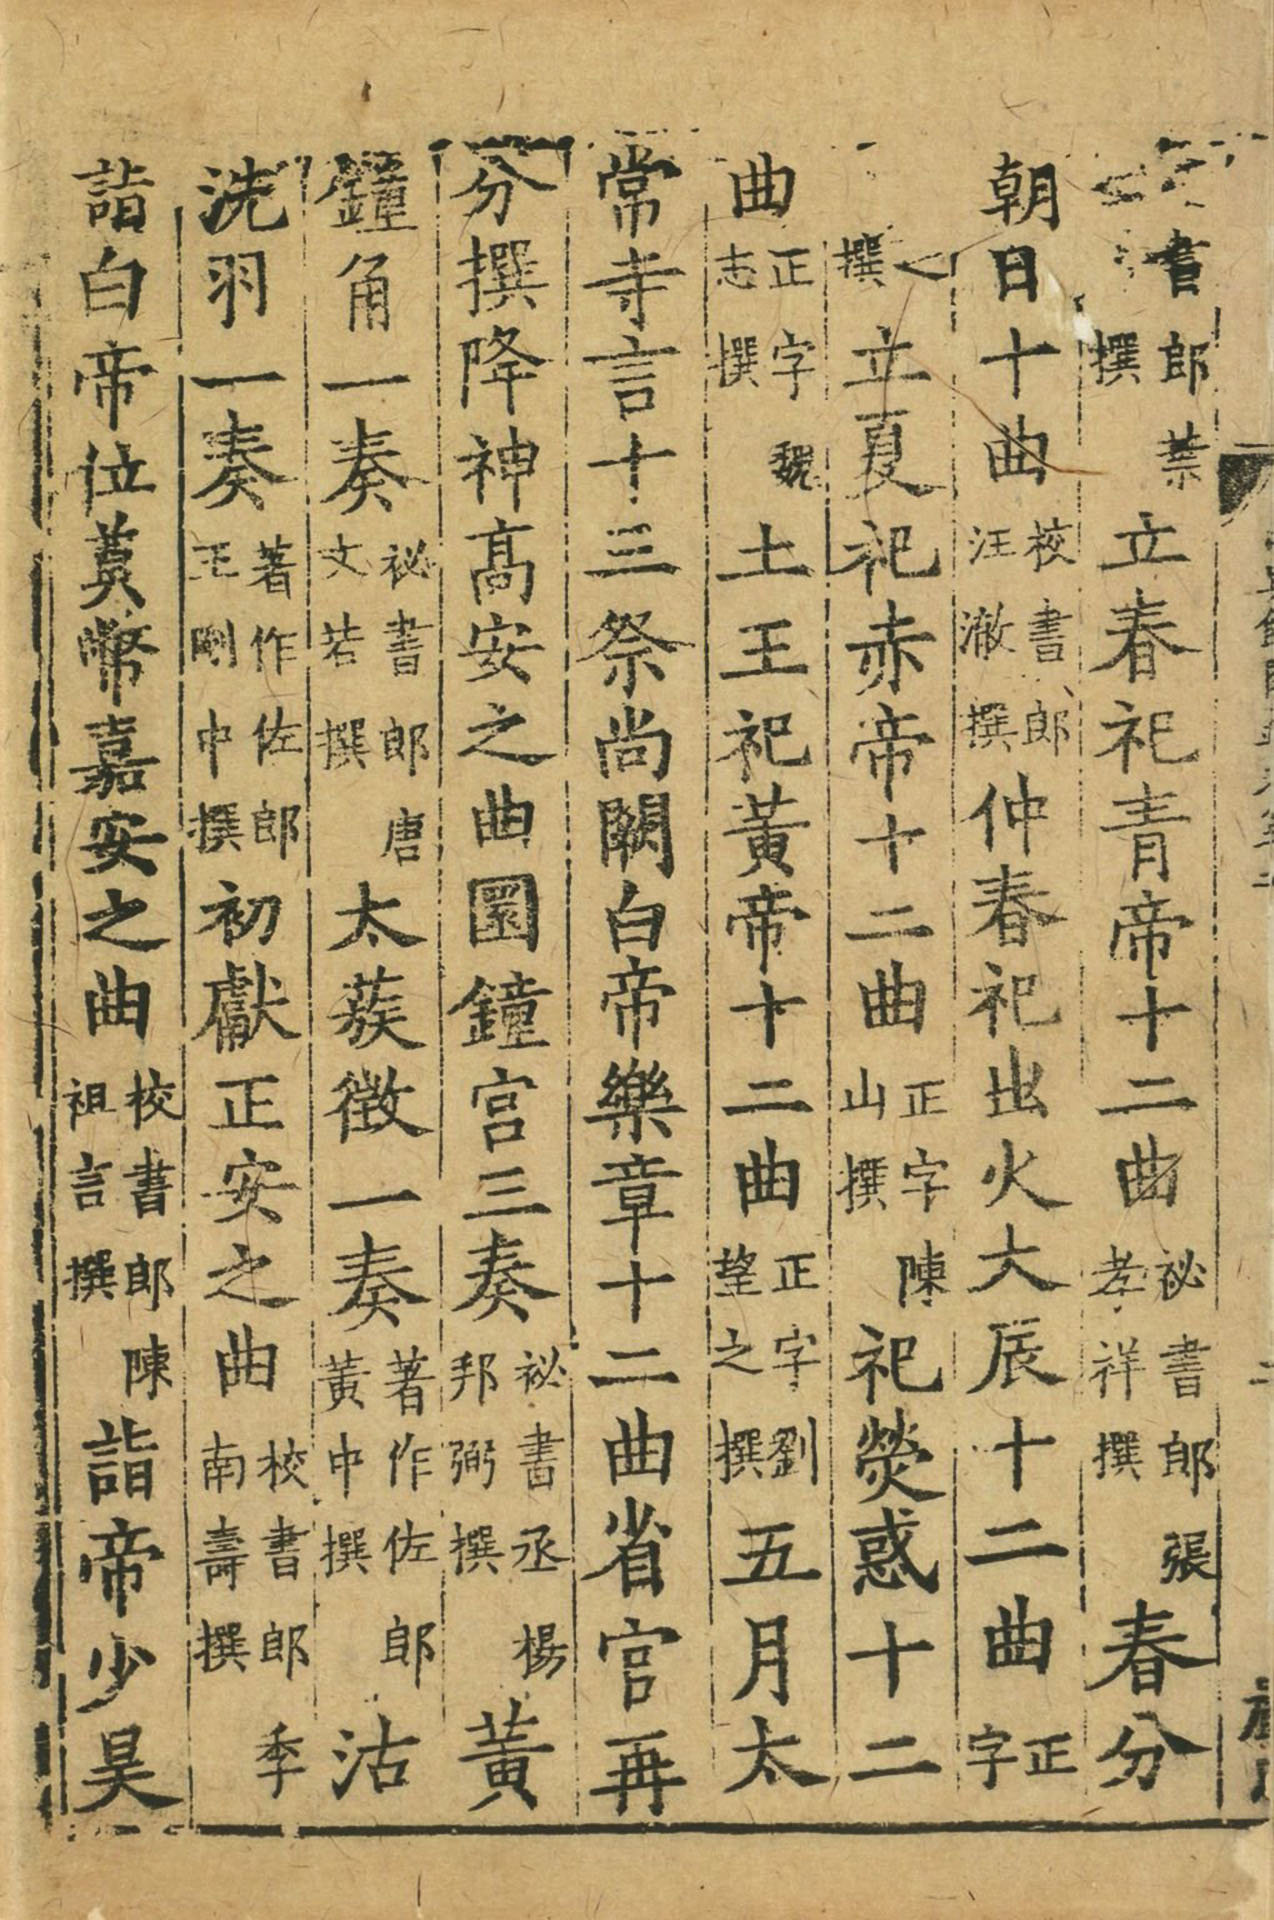 書郎撰立春祀青帝十二曲祕書郎張孝祥撰春分
朝日十曲校書郎汪澈撰仲春祀出火大辰十二曲正字
撰立夏祀赤帝十二曲正字陳山撰祀熒惑十二
曲正字魏志撰土王祀黃帝十二曲正字劉望之撰五月太
常寺言十三祭尚闕白帝樂章十二曲省官再
分撰降神高安之曲圜鐘宮三奏祕書丞楊邦弼撰黃
鐘角一奏祕書郎唐文若撰太蔟徵一奏著作佐郎黃中撰沽
洗羽一奏著作佐郎王剛中撰初獻正安之曲校書郎季南壽撰
詣白帝位奠幣嘉安之曲校書郎陳祖言撰詣帝少昊